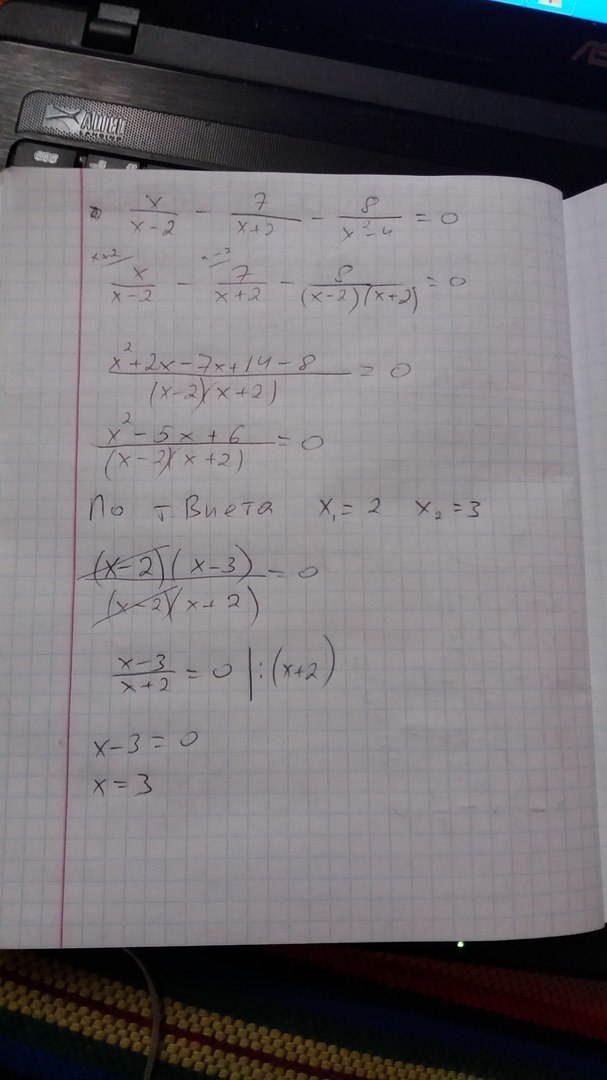 x/(x-2) - 7/(x+2) - 8/(x²-4) = 0
x/(x-2) - 7/(x+2) - 8/((x-2)(x+2)) = 0
(x²+2x-7x+14-8)/((x-2)(x+2)) = 0
(x²-5x+6)/((x-2)(x+2)) = 0
По т Виета x₁=2 x₂=3
((x-2)(x-3))/((x-2)(x+2)) = 0
(x-3)/(x+2) = 0 |:(x+2)
x-3=0
x=3